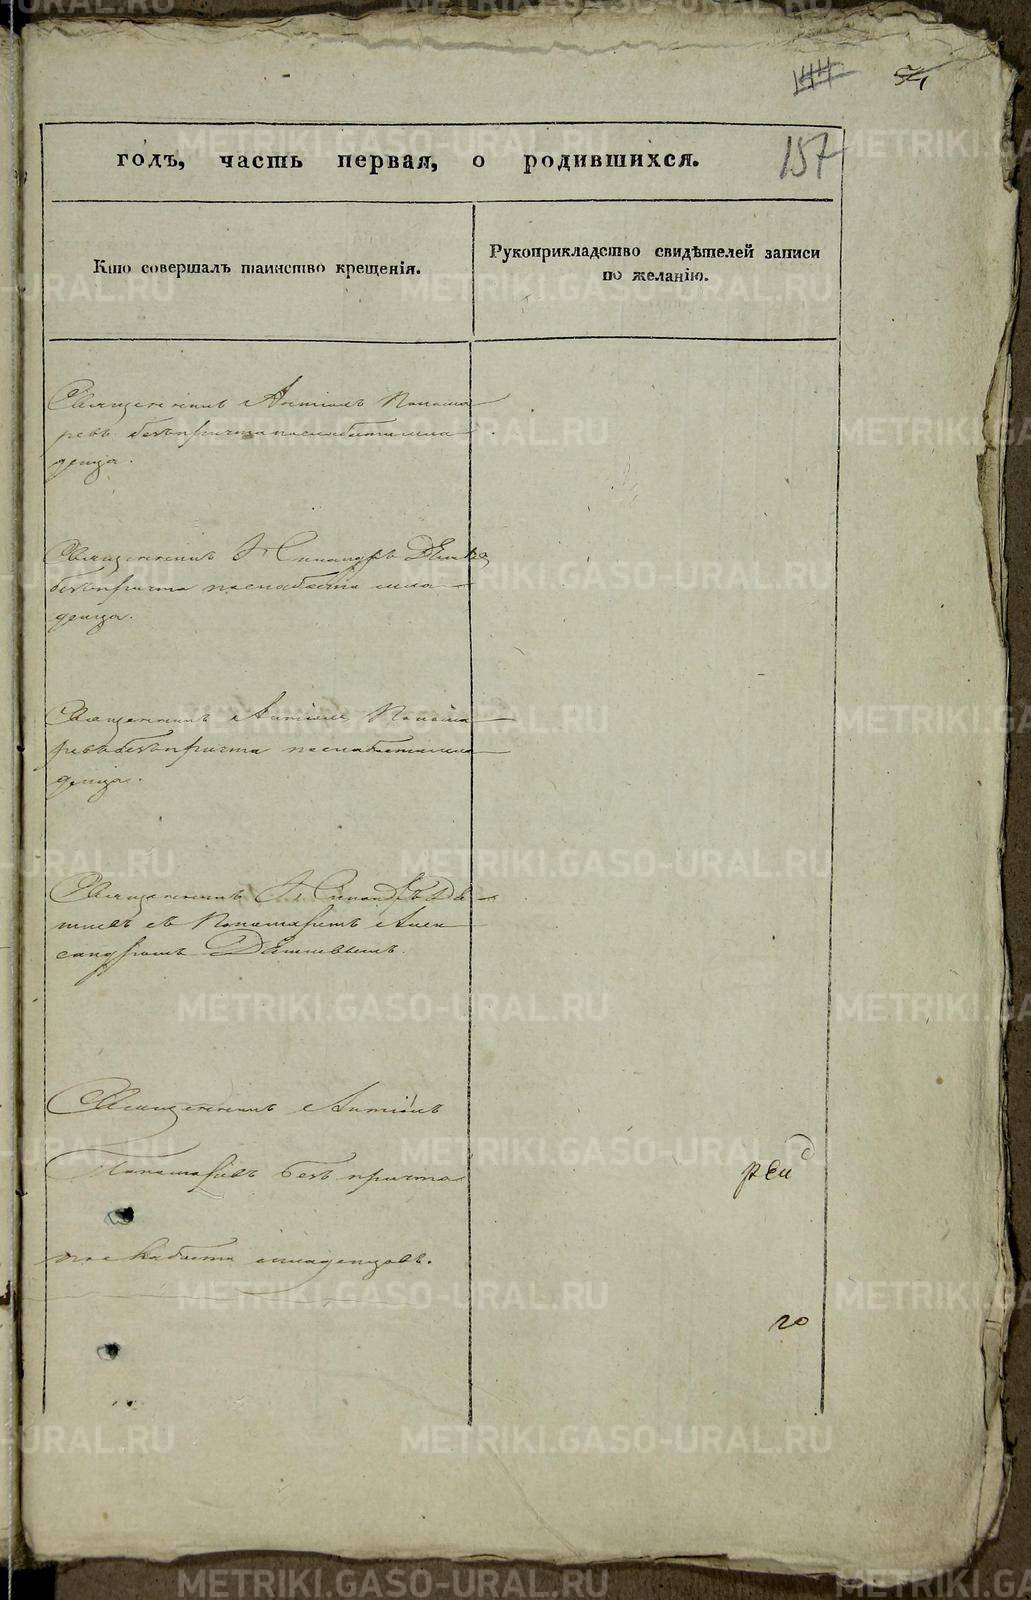 54
157
годъ, часть первая, о родившихся.
Кто совершалъ таинство крещенія.
Рукоприкладство свидѣтелей записи
по желанію.
Священникъ Антоній Понома
ревъ безъ причта послабости мла
денца.
Священникъ
безъ причта послабости мла
денца.
Священникъ Антоній Понома
ревъ безъ причта послабости мла
денца.
Священникъ
съ Пономаремъ Алек
сандромъ
Священникъ Антоній
Пономаревъ безъ причта
послабости младенцовъ.
METRIKI.GASO-URAL.RU